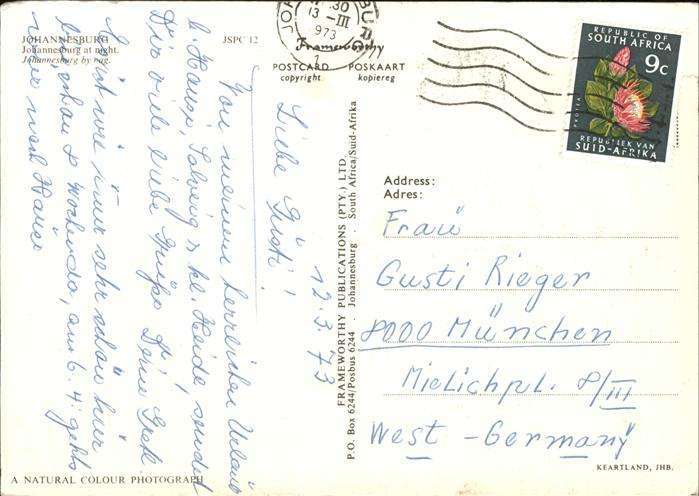 JOHANNESBURG
Johannesburg at night.
Johannesburg by nag.
JSPC 12
Frameworthy
POSTCARD POSKAART
copyright kopiereg
13 -III
973
REPUBLIC OF
SOUTH AFRICA
9c
PROTEA
REPUBLIEK VAN
SUID-AFRIKA
12.3.73
Liebe Gusti!
Von meinem herrlichen Urlaub
b. Hansi, Solveig & kl. Heide, sendet
Dir viele liebe Grüße Deine
Es ist wie immer sehr schön hier
schon 8 Wochen da, am 6. 4. gehts
wieder nach Hause
FRAMEWORTHY PUBLICATIONS (PTY.) LTD.
P.O. Box 6244/Posbus 6244 . Johannesburg . South Africa/Suid-Afrika
Address:
Adres:
Fraü
Gusti Rieger
8000 München
Mielichpl. 8/III
West-Germany
A NATURAL COLOUR PHOTOGRAPH
KEARTLAND, JHB.